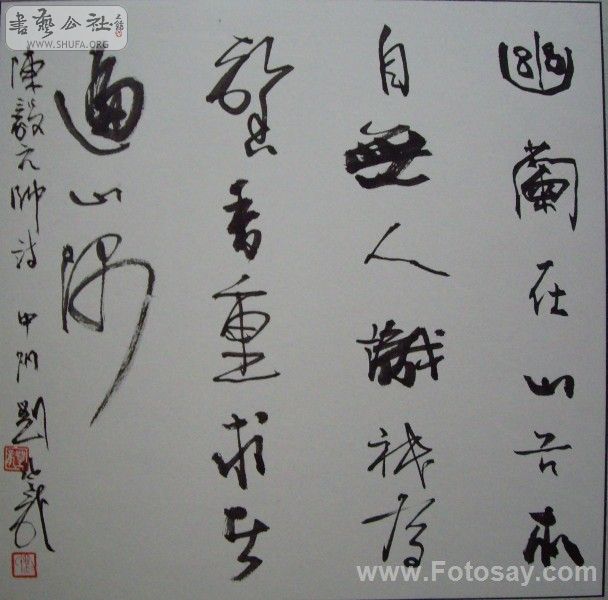 幽蘭在山谷本
自無人識祇為
馨香重求者
遍山隅
陳毅元帥詩 甲 劉
書藝公社
WWW.SHUFA.ORG
www.Fotosay.com